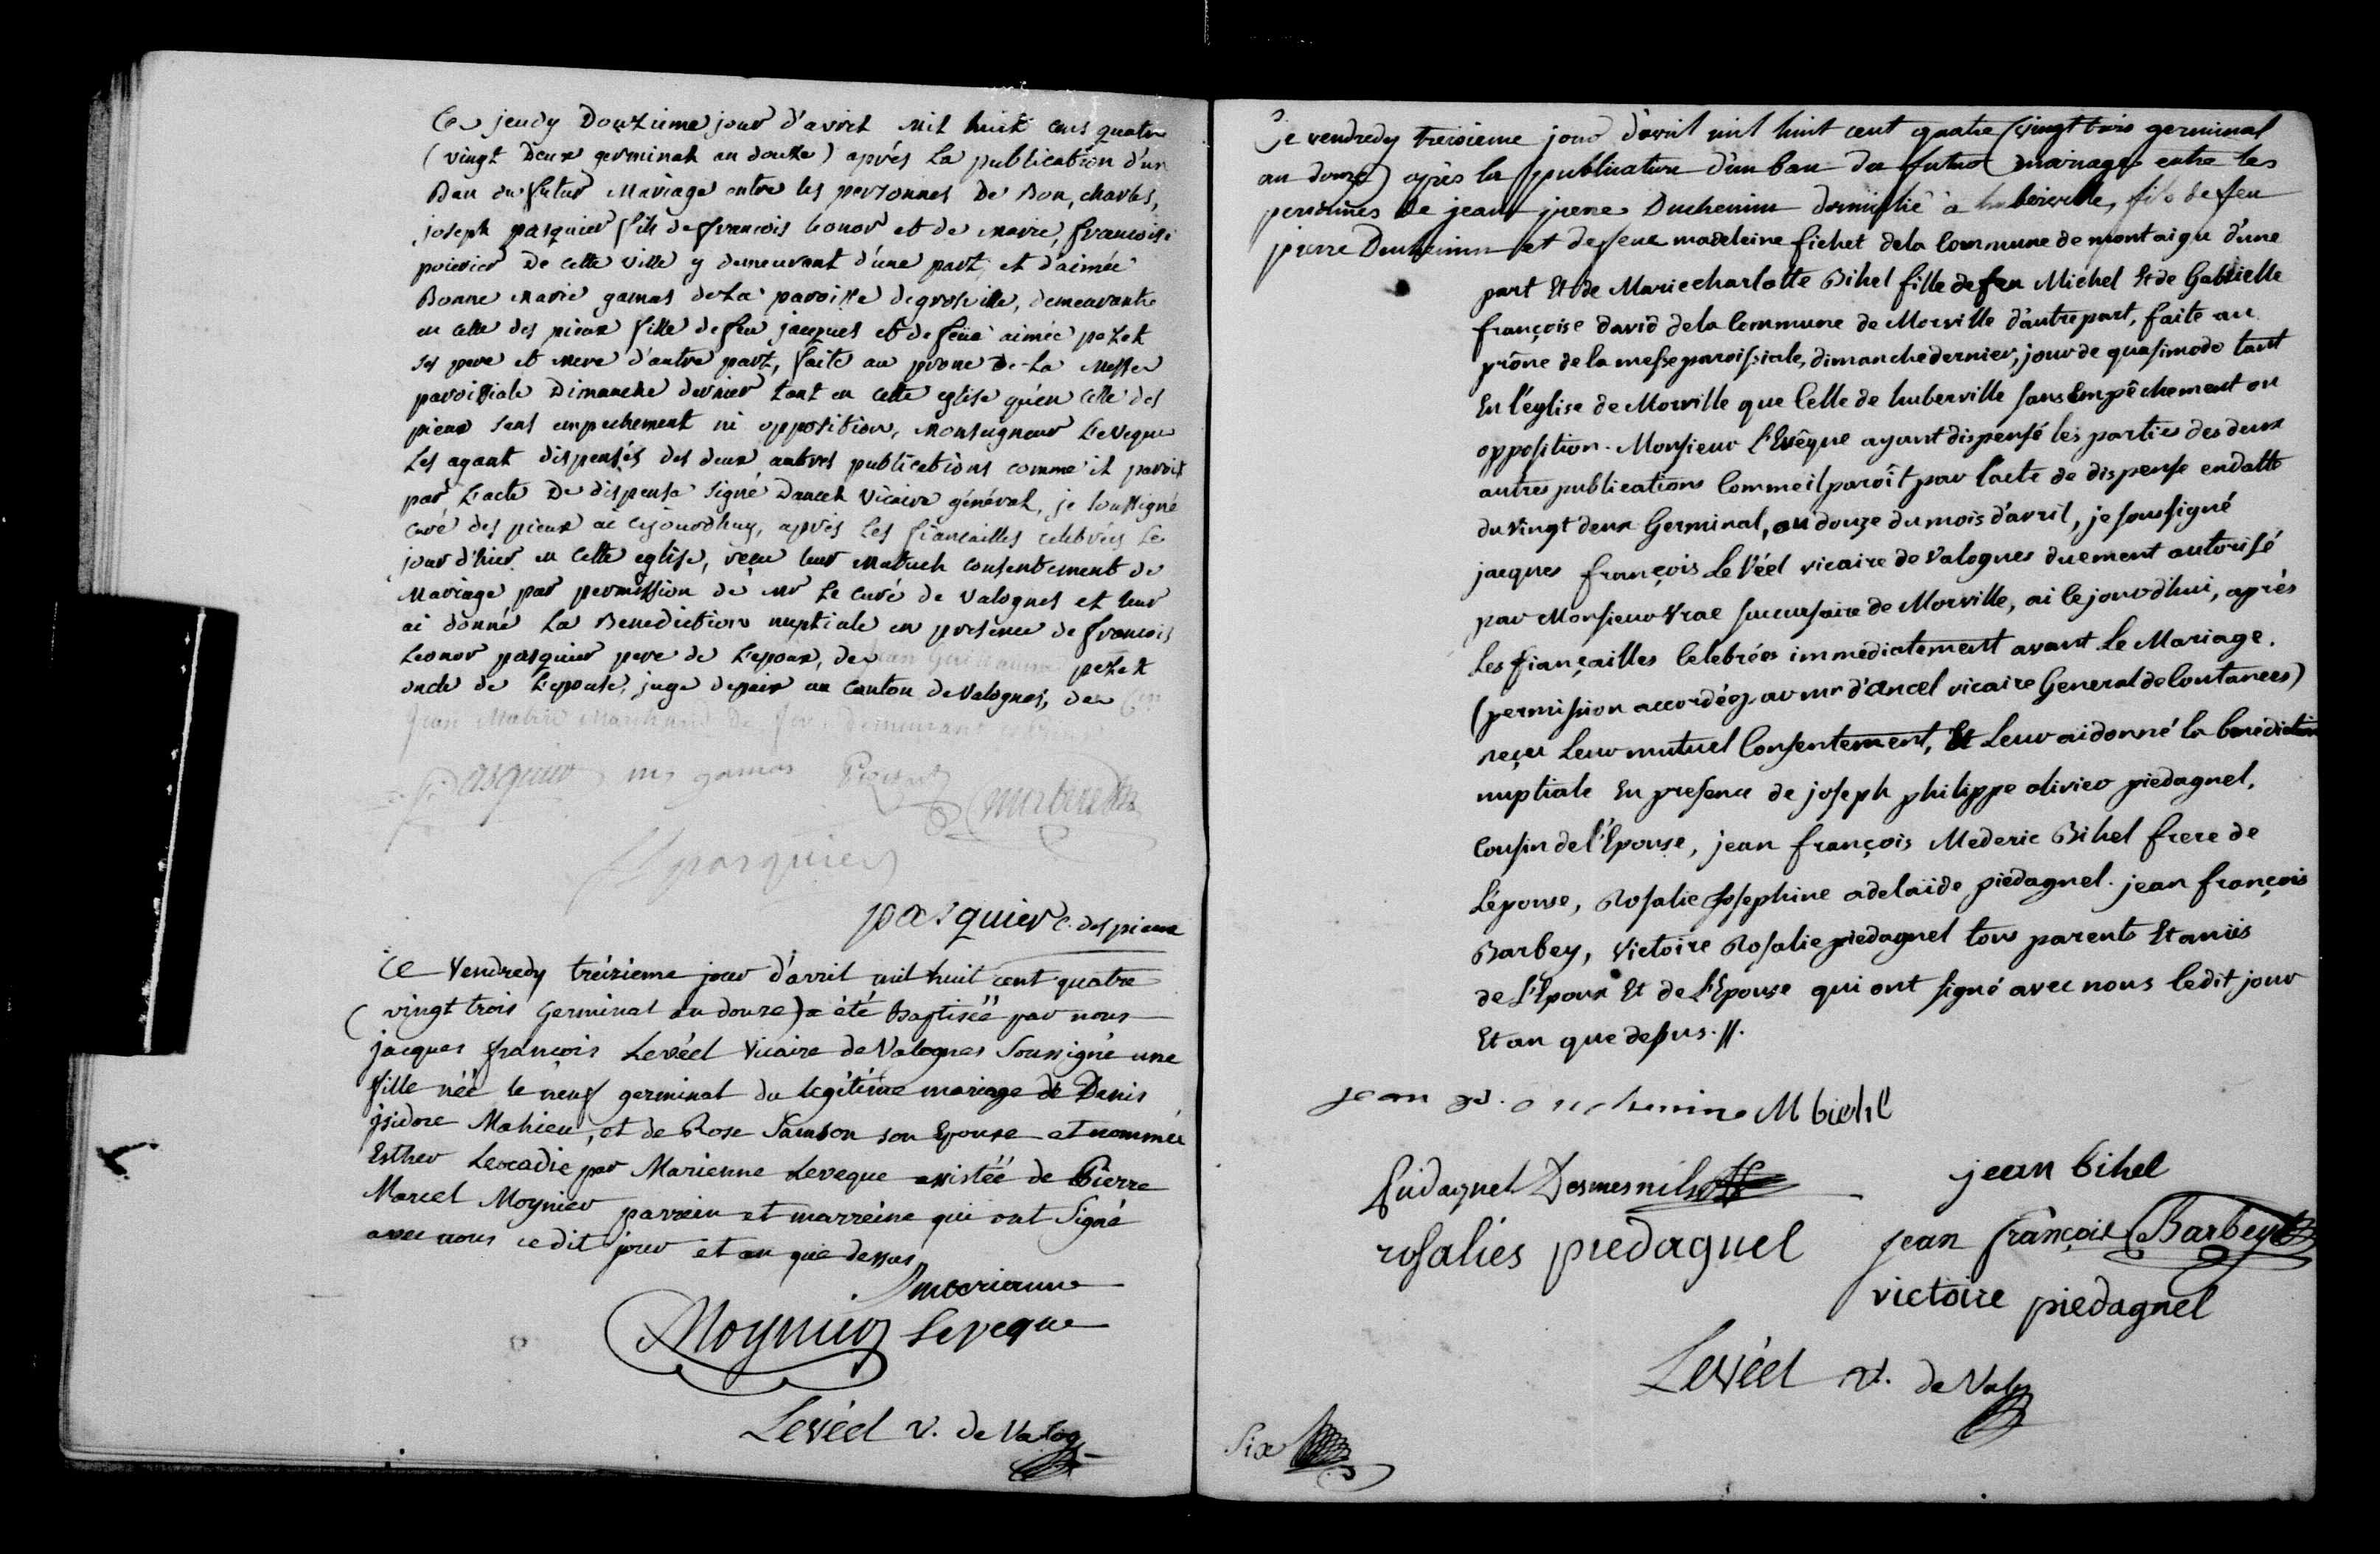 Ce jeudy Douzieme jour d'avril mil huit cens quatre
(vingt Deux germinal an douze) aprés La publication d'un
Ban du futur Mariage entre les personnes De Bon, charles,
joseph pasquier fils de francois leonor et de marie, francoise
poirier De cette ville y demeurant d'une part, et d'aimée
Bonne marie gamas de La paroisse de grosville, demeurante
en celle des pieux fille de feu jacques et de feüe aimée pezet
ses pere et mere d'autre part, faite au prone De La Messe
paroissiale Dimanche dernier tant en cette eglise qu'en celle des
pieux sans empechement ni opposition, monseigneur L'eveque
Les ayant dispensés des deux autres publications comme il paroit
par L'acte De dispense signé Dancel vicaire général, je soussigné
curé des pieux ai cejourdhuy, après Les fiancailles celebrées Le
jour d'hier en cette eglise, reçu leur mutuel consentement de
Mariage par permission de mr Le curé de valognes et leur
ai donné La Benediction nuptiale en presence de francois
Leonor pasquier pere de L'epoux, de jean Guillaume pezet
oncle de L'epouse, juge de paix au canton de Valognes, de
jean Marchand de demeurant
Pasquier gamas Pezet
pasquier
pasquier c. des pieux
Ce Vendredy treizieme jour d'avril mil huit cent quatre
(vingt trois Germinal an douze) a été baptiséé par nous
jacques françois Levéel Vicaire de Valognes Soussigné une
fille néé le neuf germinal du légitime mariage de Denis
jsidore Mahieu, et de Rose Samson son Epouse et nommée
Esther Leocadie par Marienne Leveque assistéé de Pierre
Marcel Moynier parrein et marreine qui ont Signé
avec nous ce dit jour et an que dessus
marianne
Moynier Leveque
Levéel v. de Valog
Ce vendredy treisieme jour d'avril mil huit cent quatre (vingt trois germinal
an douze) après la publication d'un ban du futur mariage entre les
personnes de jean pierre Duchemin domicilié à huberville, fils de feu
pierre Duchemin et de feue madeleine fichet dela Commune de montaigu d'une
part Et de Marie charlotte Bihel fille de feu Michel Et de Gabrielle
françoise david dela Commune de Morville d'autre part, faite au
prône de la messe paroissiale, dimanche dernier, jour de quasimodo tant
En l'église de Morville que Celle de huberville sans Empêchement ou
opposition. Monsieur L'Evêque ayant dispensé les parties des deux
autres publications Comme il paroît par l'acte de dispense en datte
du vingt deux Germinal, ou douze du mois d'avril, je soussigné
jacques françois Le Véel vicaire de Valognes duement autorisé
par Monsieur Vrac succursaire de Morville, ai le jourd'hui, après
Les fiançailles Celebrées immédiatement avant Le Mariage.
(permission accordée par mr d'ancel vicaire General de Coutances)
reçu Leur mutuel Consentement, Et Leur ai donné la benédiction
nuptiale En presence de joseph philippe olivier piedagnel,
Cousin de l'Epouse, jean françois Mederic Bihel frere de
L'épouse, Rosalie Josephine adelaïde piedagnel. jean françois
Barbey, Victoire Rosalie piedagnel tous parents Et amies
de L'Epoux Et de L'Epouse qui ont signé avec nous ledit jour
Et an que desus.//.
jean p. duchemin M bichl
Piedagnel Desmesnils jean bihel
rosalies piedagnel jean françois Barbey
victoire piedagnel
Levéel v. de Valog
Six